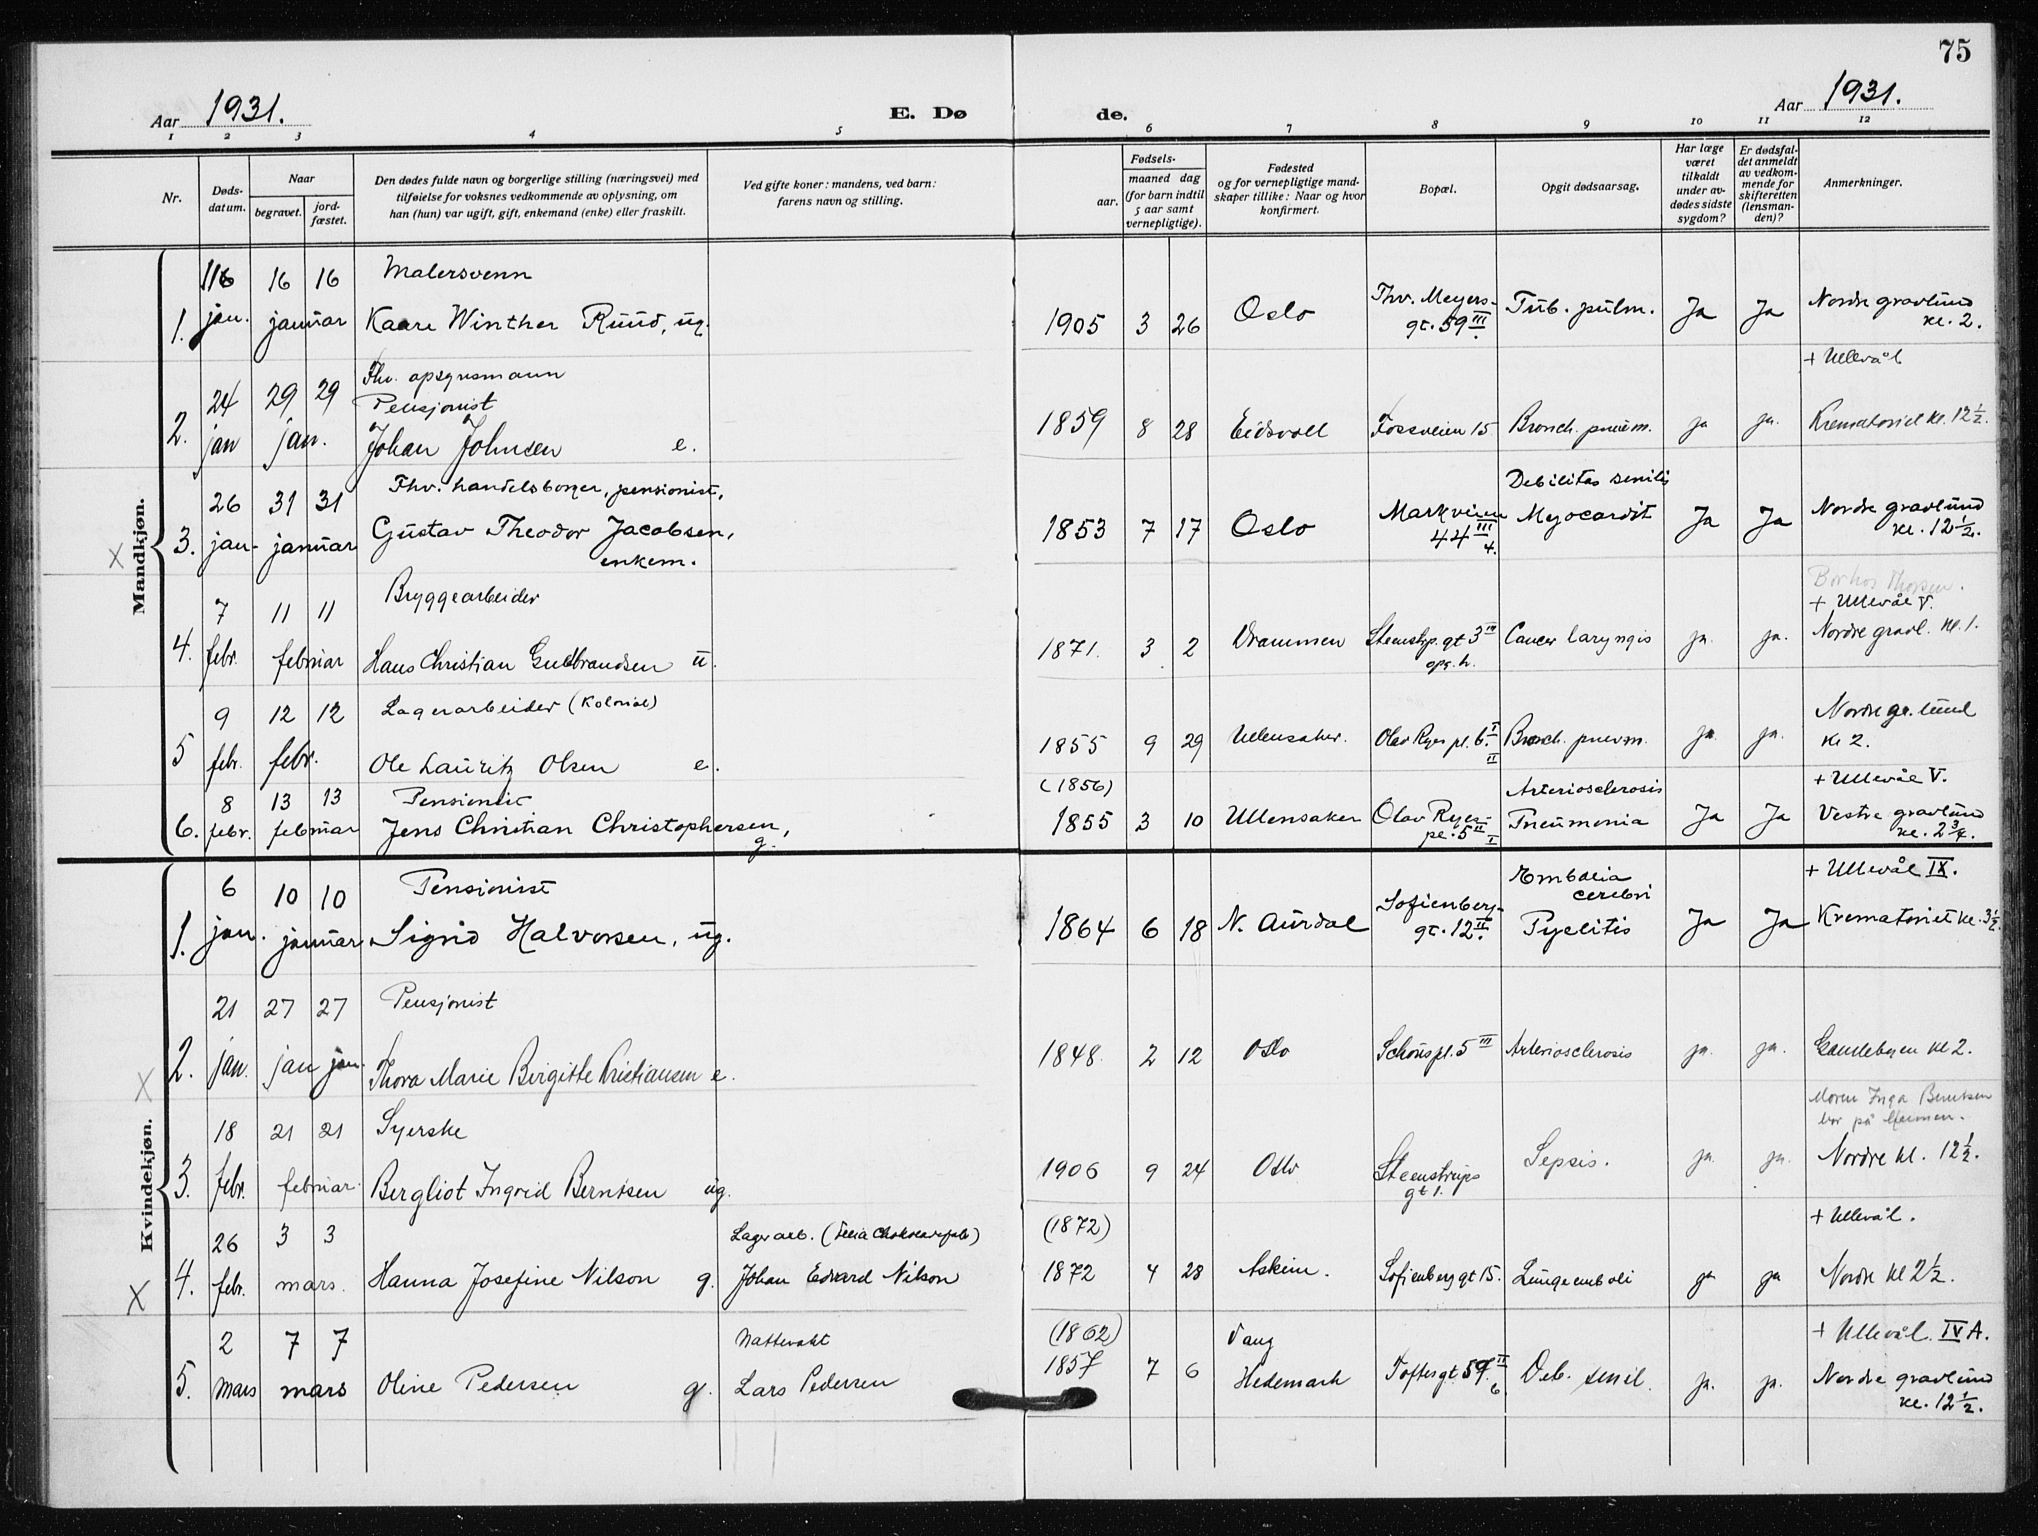 75
Aar 1931.
E. Dø de.
Aar 1931.
1 2 3 4 5 6 7 8 9 10 11 12
Nr.
Døds-
datum.
Naar
begravet.
jord-
fæstet.
Den dødes fulde navn og borgerlige stilling (næringsvei) med
tilføielse for voksnes vedkommende av oplysning, om
han (hun) var ugift, gift, enkemand (enke) eller fraskilt.
Ved gifte koner: mandens, ved barn:
farens navn og stilling.
Fødsels-
aar.
maaned dag
(for barn indtil
5 aar samt
vernepligtige).
Fødested
og for vernepligtige mand-
skaper tillike: Naar og hvor
konfirmert.
Bopæl.
Opgit dødsaarsag.
Har læge
været
tilkaldt
under av-
dødes sidste
sygdom?
Er dødsfal-
det anmeldt
av vedkom-
mende for
skifteretten
(lensman-
den)?
Anmerkninger.
Mandkjøn.
16 16 Malersvenn
1. jan. januar Kaare Winther Ruud, ug. 1905 3 26 Oslo Thv. Meyers-
gt. 59 III Tub. pulm. Ja Ja Nordre gravlund
kl. 2.
+ Ullevål
24 29 29 Fhv. opsynsmann
Pensjonist
2. jan jan. Johan Johnsen e. 1859 8 28 Eidsvoll Fossveien 15 Bronch. pneum. ja ja. Krematoriet kl. 12 ½.
26 31 31 Fhv. handelsborger, pensionist, Debilitas senilis
X 3. jan. januar Gustav Theodor Jacobsen,
enkem. 1853 7 17 Oslo Markveien
44 III
4. Myocardit Ja Ja Nordre gravlund
kl. 12 ½.
7 11 11 Bryggearbeider
+ Ullevål V.
4. febr. februar Hans Christian Gulbrandsen u. 1871. 3 2 Drammen Steenstrp. gt 3 IV
opg. h. Cancer laryngis ja. ja. Nordre gravl. kl. 1.
9 12 12 Lagerarbeider (Kolonial)
5 febr. febr. Ole Lauritz Olsen e. 1855 9 29 Ullensaker. Olav Ryes pl. 6. I
II Bronch. pneum. ja ja. Nordre gr. lund
kl 2.
8 13 13 Pensionist (1856) Arteriosclerosis + Ullevål V.
6. febr. februar Jens Christian Christophersen,
g. 1855 3 10 Ullensaker Olav Ryes-
pl. 5 II
I Pneumonia Ja Ja Vestre gravlund
kl. 2 ¾.
Kvindekjøn.
6 10 10 Pensionist Embolia
cerebri + Ullevål IX.
1. jan. januar Sigrid Halvorsen, ug. 1864 6 18 N. Aurdal Sofienberg-
gt. 12 II. Pyelitis Ja Ja Krematoriet kl. 3 ½.
21 27 27 Pensjonist
X 2. jan. jan jan. Thora Marie Birgitte Kristiansen e. 1848. 2 12 Oslo Schous pl. 5 III Arteriosclerosis ja. ja. Gamlebyen kl 2.
Moren Inga Berntsen
bor på
18 21 21 Syerske
3. febr. februar. Bergliot Ingrid Berntsen ug. 1906 9 24 Oslo Steenstrups
gt 1. Sepsis. ja. ja. Nordre kl. 12 ½.
26 3 3 Lagerarb. (1872) + Ullevål.
X 4. febr. mars. Hanna Josefine Nilson g. Johan Edvard Nilson 1872 4 28 Askim. Sofienberg gt 15. Lungeemboli ja ja Nordre kl 2 ½.
2 7 7 Nattevakt (1862) Vang + Ullevål. IV A.
5. mars mars Oline Pedersen g. Lars Pedersen 1857 7 6 Hedemark Toftesgt. 59. II
6 Deb. senil. ja. ja. Nordre gravlund
kl. 12 ½.